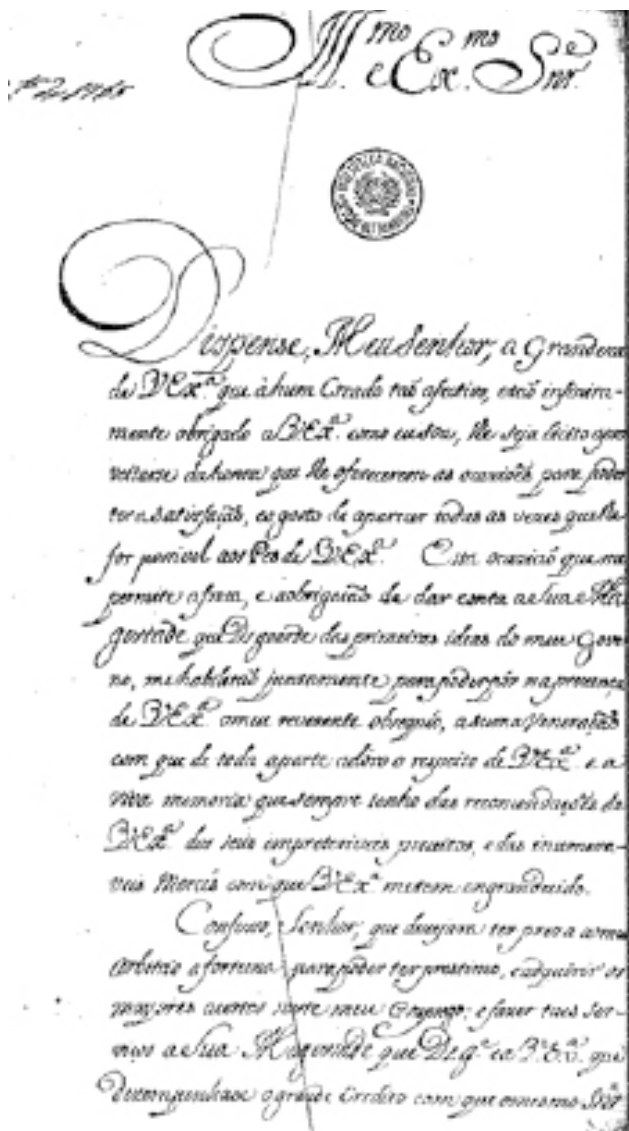 Ill.mo e Ex.mo Snr.e
de 1765
BIBLIOTHECA NACIONAL
Dispense, Meu Senhor, a Grandeza
de V Ex.a que à hum Creado taõ afectivo, e taõ infinita-
mente obrigado a V Ex.a como eu sou, lhe seja licito apro-
veitarse da honra que lhe oferecerem as occazioẽs para poder
ter a satisfaçaõ, e o gosto de aparecer todas as vezes que lhe
for possivel aos Pes de V Ex.a Esta occaziaõ que me
permite a frota, e a obrigaçaõ de dar conta a sua Ma
gestade que Ds guarde das primeiras ideas do meu Gover
no, me habilitaõ juntamente para poder pór na prezença
de V Ex.a o meu reverente obsequio, a suma Veneraçaõ
com que de toda a parte adóro o respeito de V Ex.a e a
viva memoria que sempre tenho das recomendaçoẽs de
V Ex.a dos seus impreteriveis preceitos, e das innumera-
veis Mercês com que V Ex.a me tem engrandecido.
Confesso, Senhor, que dezejava ter preza a o meu
arbitrio a fortuna para poder ter prestimo, e adquirir os
mayores acertos neste meu Governo; e fazer taes ser-
viços a Sua Magestade que Ds g.e e a V. Ex.a que
dezempenhase o grande Credito com que o mesmo Snr